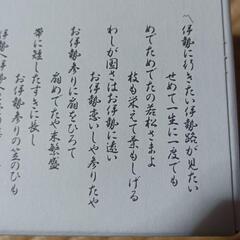 〽伊勢に行きたい伊勢路が見たい
せめて一生に一度でも
めでためでたの若松さまよ
枝も栄えて葉もしげる
わしが国さはお伊勢に遠い
お伊勢恋しや参りたや
お伊勢参りに扇をひろて
扇めでたや末繁盛
帯に短したすきに長し
お伊勢参りの笠のひも